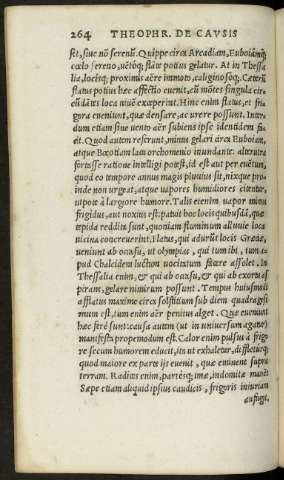 264 THEOPHR. DE CAVSIS
set, siue nõ serenũ. Quippe circa Arcadiam, Euboiámq́;
cœlo sereno, uẽtóq; stãte potius gelatur. At in Thessa
lia, locisq; proximis aëre immoto, caliginosóq;. Cæterũ
flatus potius hæc affectio euenit, cũ mõtes singula circ
cũdãtes loca niuẽ exceperint. Hinc enim flatus, et fri
gora eueniunt, quæ densare, ac urere possunt. Inter
dum etiam siue uento aër subiens ipse identidem fa
cit. Quod autem referunt, minus gelari circa Euboiam,
atque Bœotiam lacu orchomenio inundante. alterutra
fortasse ratione intelligi potest, id est aut per euẽtum,
quod eo tempore annus magis pluuius sit, nixque pro-
inde non urgeat, atque uapores humidiores citentur,
utpote à largiore humore. Tales etenim uapor minus
frigidus, aut noxius est: patait hoc locis quibusdã, quæ
tepida reddita sunt, quoniam fluminum alluuie loca
uicina concreuerint. Flatus, qui adurũt locis Græciæ,
ueniunt ab occasu, ut olympias, qui tum ibi, tum a-
pud Chalcidem luctum uocitatum flare assolet. In
Thessalia enim, & qui ab occasu, & qui ab exortu as
pirant, gelare nimirum possunt. Tempus huiusmodi
afflatus maxime circa solstitium sub diem quadragesi
mum est, tum enim aër penitus alget. Quæ eueniunt
hæc ferè sunt: causa autem (ut in uniuersum agatur)
manifesta propemodum est. Calor enim pulsus à frigo
re secum humorem educit, is ut exhaletur, diffletúrq;
quod maiore ex parte ijs euenit, quæ eminent supra
terram. Radices enim, partésq; imæ, indomitæ manẽt
Sæpe etiam aliquid ipsius caudicis, frigoris iniuriam
aufugit,